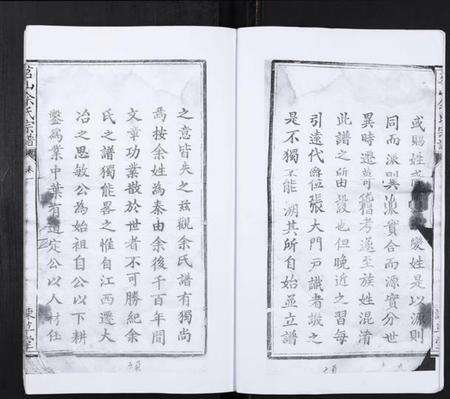 或賜姓或變姓是以源則
同而派則異派實合而源實分世
異時遷曾稽考遂至族姓混淆
此譜之所由設也但晚近之習每
引遠代爵位張大門戶識者譏之
是不獨不能溯其所自始並立譜
之意皆失之茲觀余氏譜有獨尚
焉按余姓為秦由余後千百年間
文章功業散於世者不可勝紀余
氏之譜獨能畧之惟自江西遷大
冶之思敏公為始祖自公以下耕
鑿為業中葉有道定公以人材任
茗山余氏宗譜